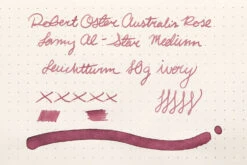 Robert Oster Australis Rose
Lamy Al-Star Medium
Leuchtturm 80g ivory